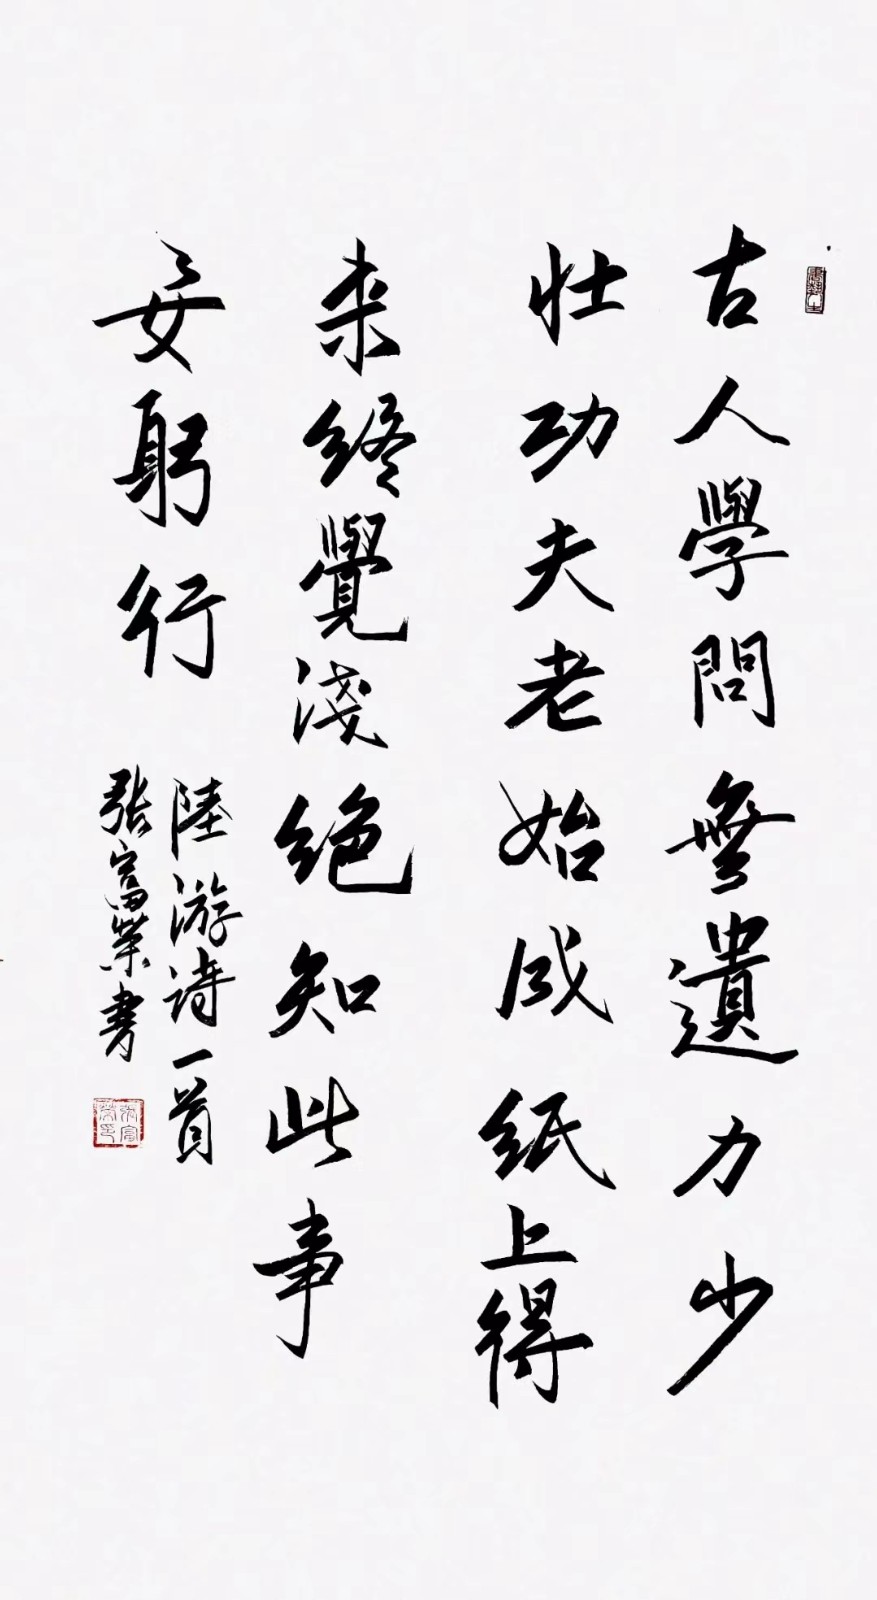 古人學問無遺力少
壯功夫老始成紙上得
来终覺淺绝知此事
要躬行
陸游诗一首
张富荣书